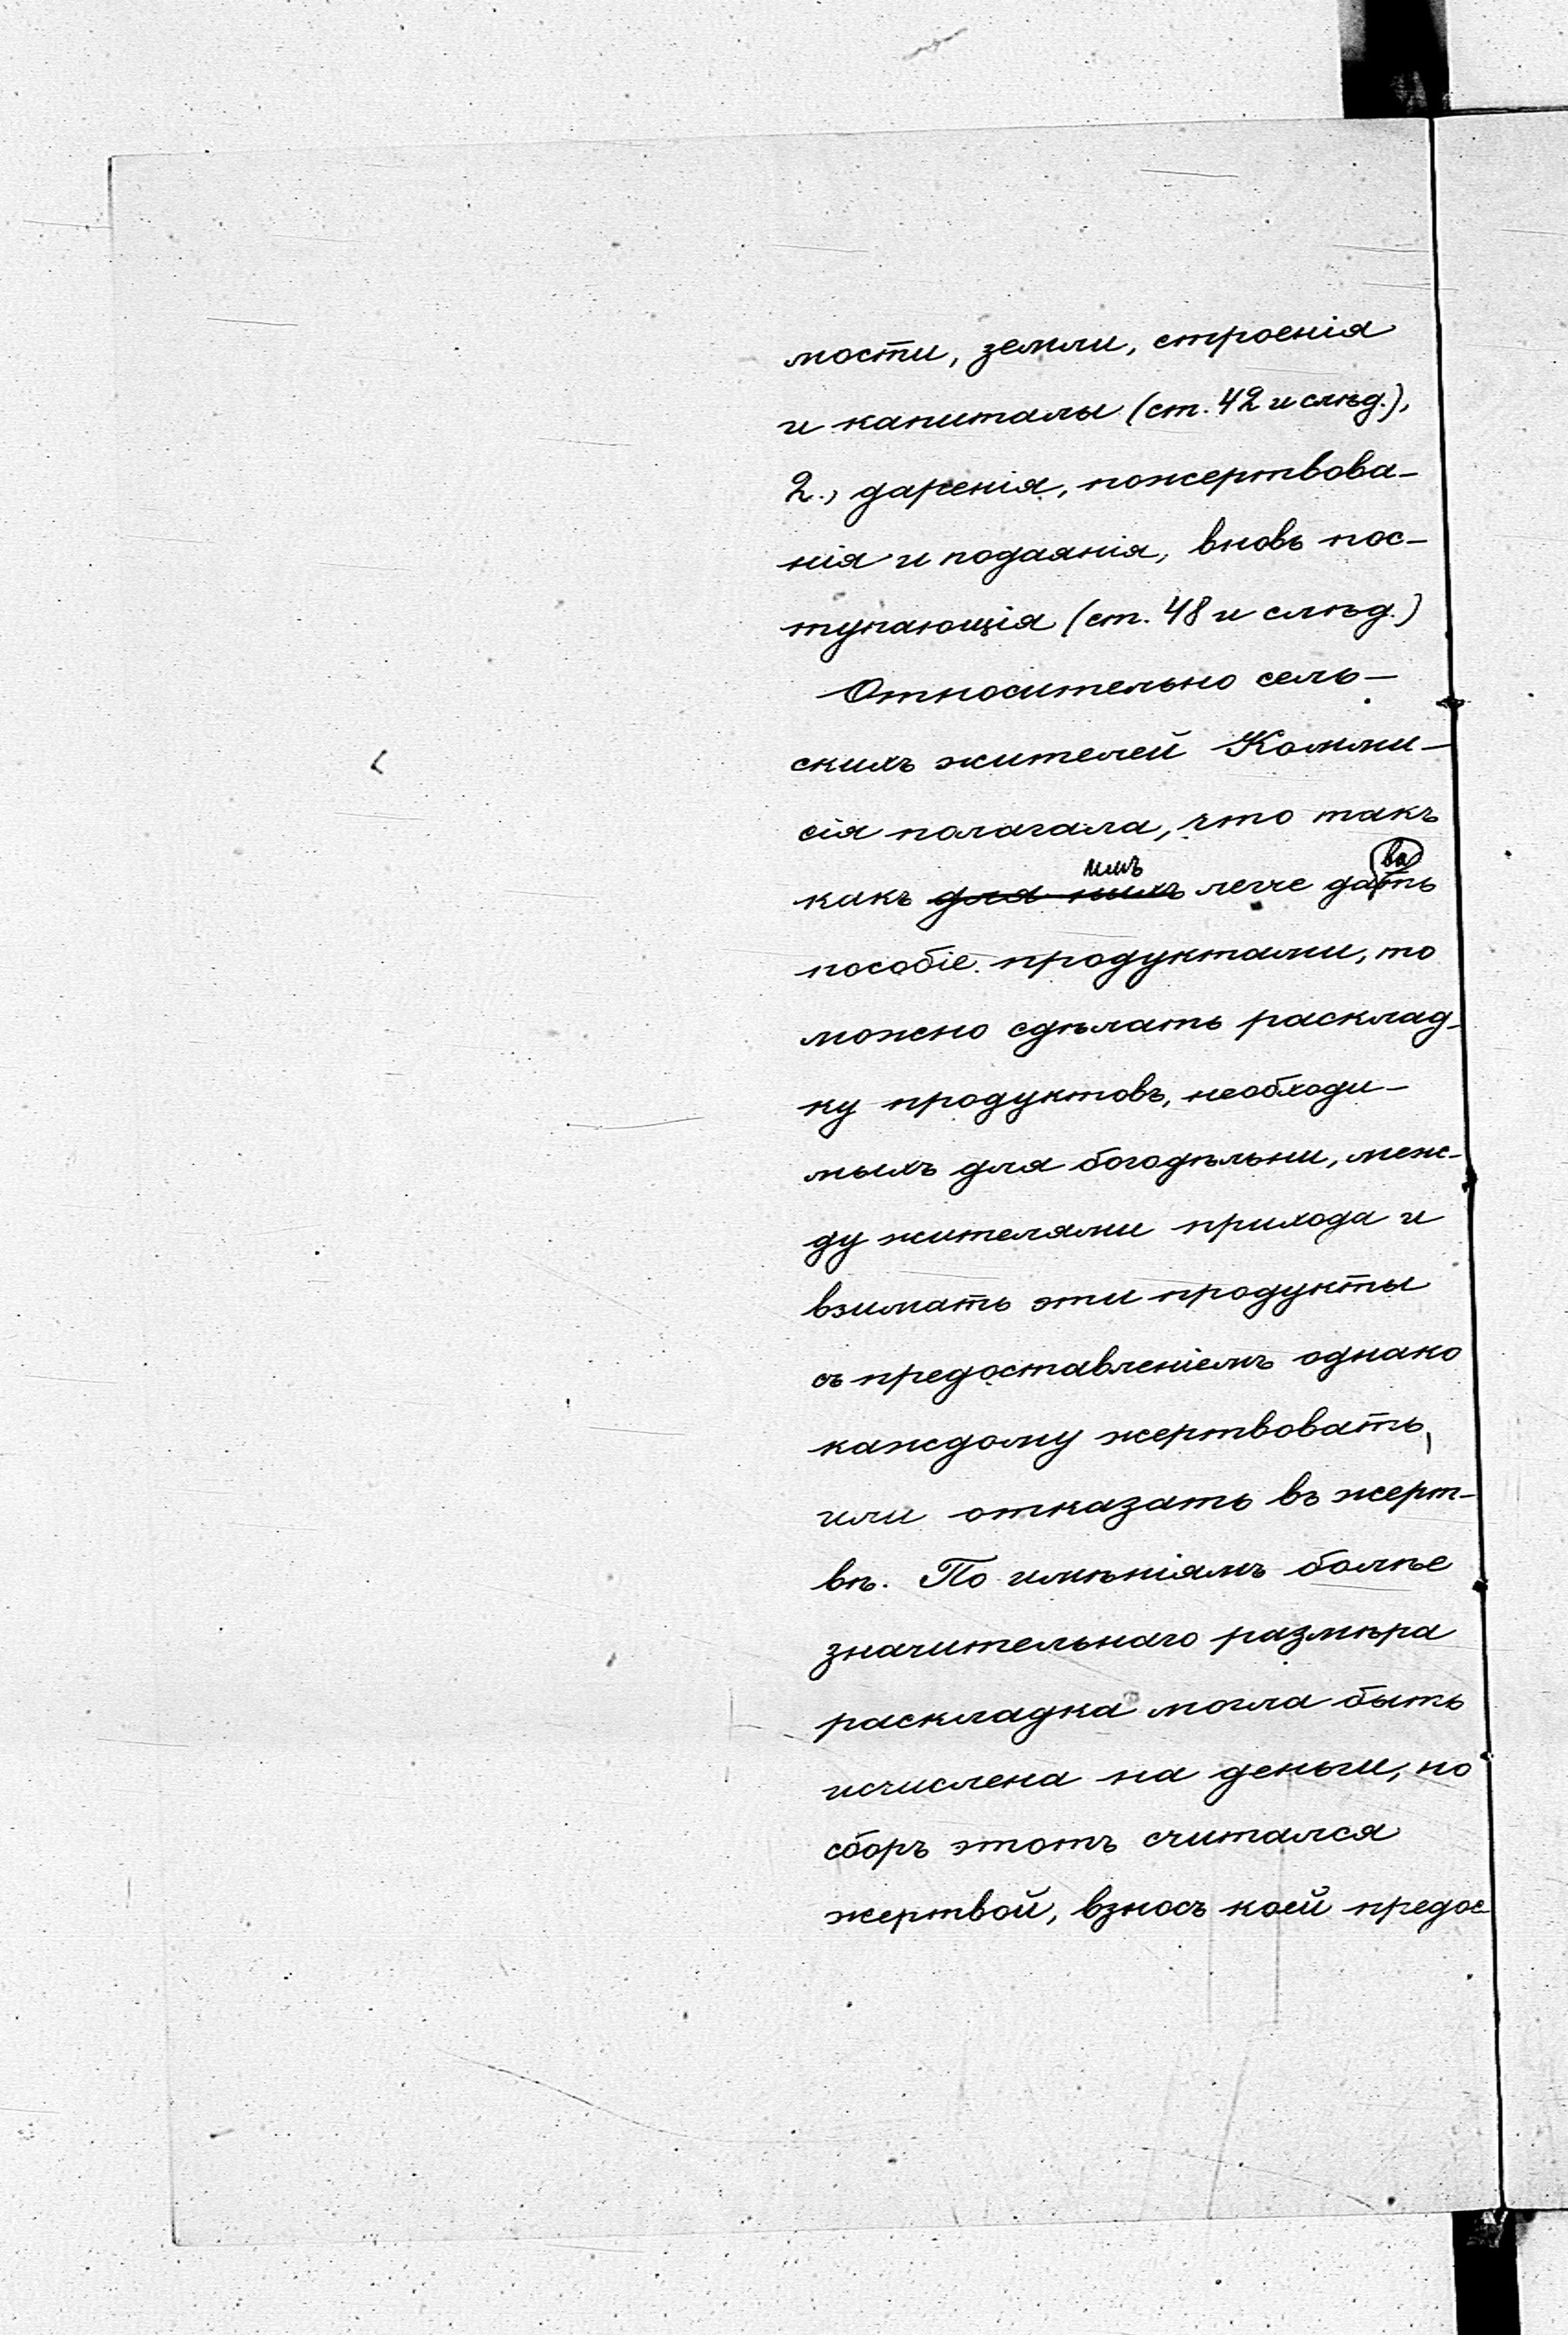 мости, земли, строенія
и капиталы (ст. 42 и слѣд.),
2., даренія, пожертвова-
нія и подаянія, вновь пос-
тупающія (ст. 48 и слѣд.)
Относительно сель-
скихъ жителей Комми-
сія полагала, что такъ
какъ ~~для нихъ~~ имъ легче давать
пособіе продуктами, то
можно сдѣлать расклад-
ку продуктовъ, необходи-
мыхъ для богодѣльни, меж-
ду жителями прихода и
взимать эти продукты
съ предоставленіемъ однако
каждому жертвовать,
или отказать въ жерт-
вѣ. По имѣніямъ болѣе
значительнаго размѣра
раскладка могла быть
исчислена на деньги, но
сборъ этотъ считался
жертвой, взносъ коей предос-